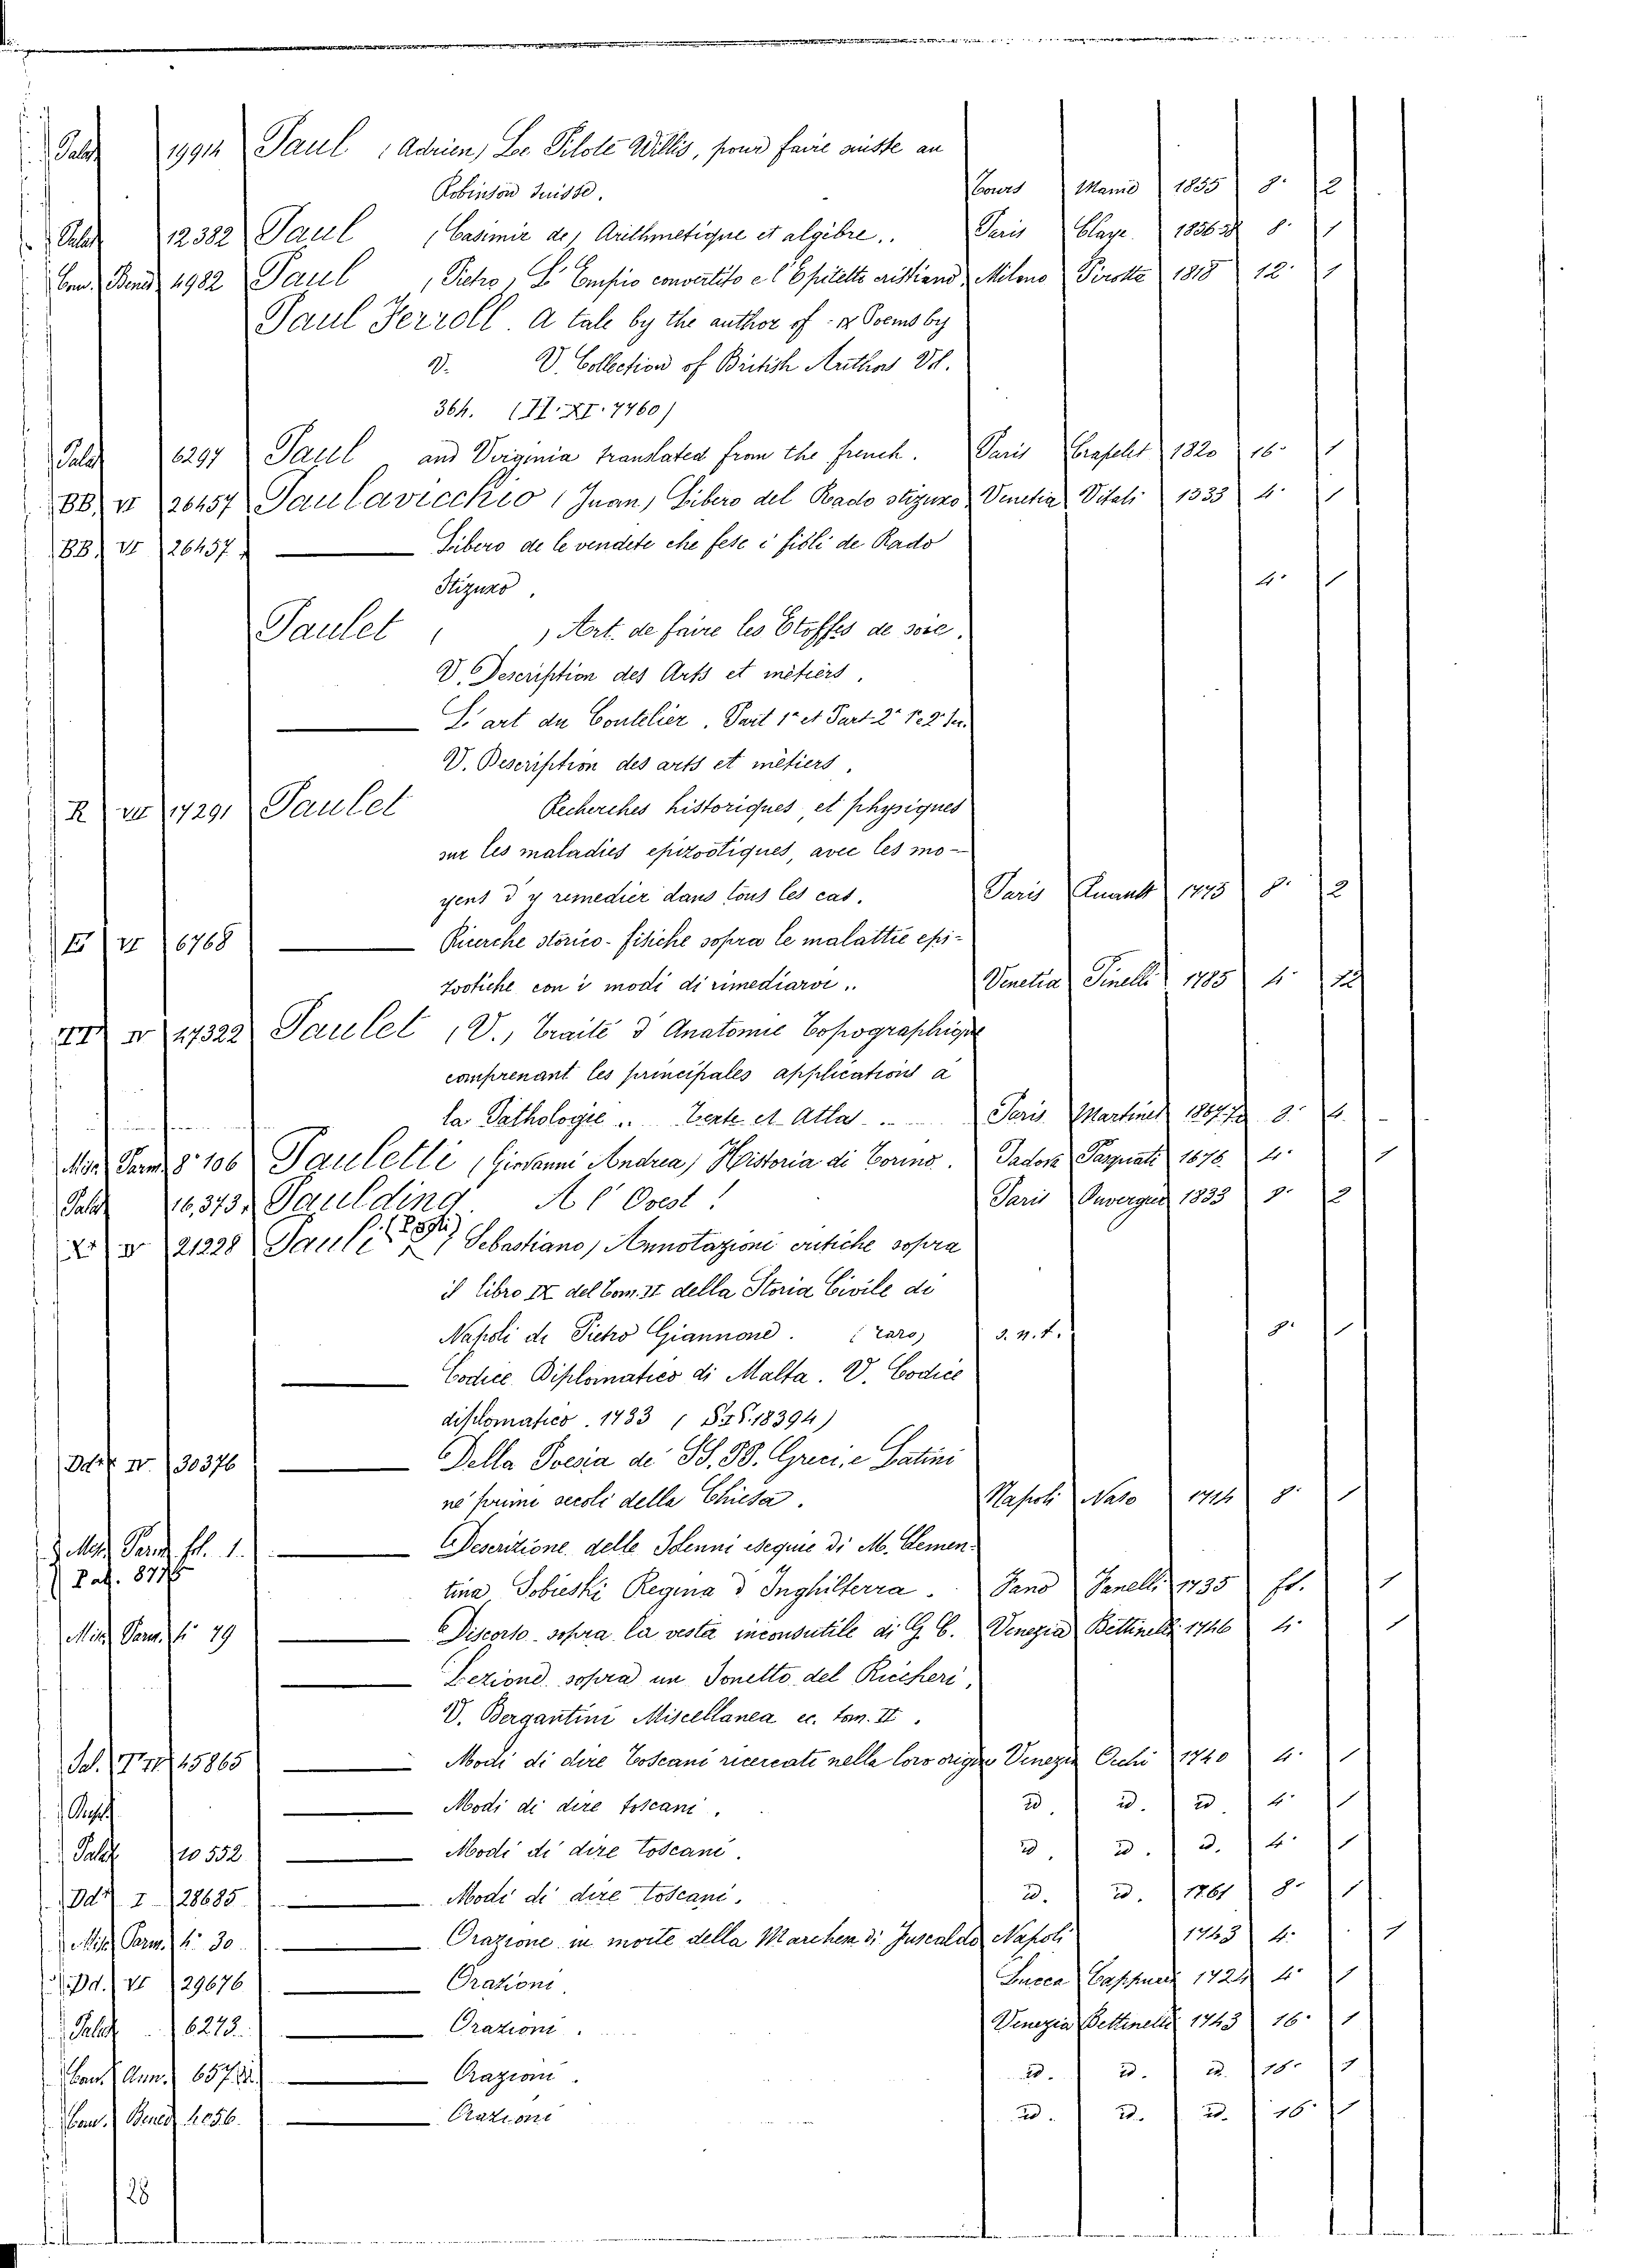 Palat 19914 Paul (Adrien) Le Pilote Willis, pour faire suite au
Robinson Suisse. Tours Mame 1855 8° 2
Palat 12382 Paul (Casimir de) Arithmetique et algèbre.. Paris Claye 1836 8° 1
Com. Bened. 4982 Paul (Pietro) L'Empio convertito e l'Epitetto cristiano Milano Pirotta 1818 12° 1
Paul Ferroll. A tale by the author of IX Poems by
V. V. Collection of British Authors Vol.
364. (II. XI. 7760)
Palat 6297 Paul and Virginia translated from the french. Paris Crapelet 1820 16° 1
BB, VI 26457 Paulavicchio (Juan) Libero del Rado stizuxo Venetia Vitali 1533 4° 1
BB, VI 26457 Libero de le vendete che fese i fioli de Rado
Stizuxo. 4° 1
Paulet ( ) Art. de faire les Etoffes de soie.
V. Description des Arts et métiers.
L'art du Coutelier. Part 1e et Part. 2e
V. Description des arts et métiers.
R VII 17291 Paulet Recherches historiques, et physiques
sur les maladies epizootiques, avec les mo-
yens d'y remedier dans tous les cas. Paris 1775 8° 2
E VI 6768 Ricerche storico-fisiche sopra le malattie epi-
zootiche con i modi di rimediarvi.. Venetia Pinelli 1785 4°
IV 47322 Paulet (V.) Traité d'Anatomie Topographique
comprenant les principales applications à
la Pathologie .. Texte et Atlas .. Paris Martinet 8°
Misc. Parm. 8° 106 Pauletti (Giovanni Andrea) Historia di Torino. Padova Pasquati 1676 4° 1
Palat 16,373 Paulding A l'Ouest! Paris Duverger 1833 8° 2
21228 Pauli (Paoli) (Sebastiano) Annotazioni critiche sopra
il libro IX del Tom. II della Storia Civile di
Napoli di Pietro Giannone. (raro) s. n. t. 8° 1
Codice Diplomatico di Malta. V. Codice
diplomatico. 1733 ( 18394)
IV. 30376 Della Poesia de' SS. PP. Greci, e Latini
ne' primi secoli della Chiesa. Napoli Naso 1714 8° 1
Misc. Parm. fol. 1. Descrizione delle Solenni esequie di M. Clemen-
Pal. 8776 tina Sobieski Regina d'Inghilterra. Fano Fanelli 1735 fol. 1
Misc. Parm. 4° 79 Discorso sopra la vesta inconsutile di G. C. Venezia Bettinelli 1746 4° 1
Lezione sopra un Sonetto del Riccheri,
V. Bergantini Miscellanea ec. tom. II.
Sal. 45865 Modi di dire Toscani ricercati nella loro origine Venezia Occhi 1740 4° 1
Modi di dire toscani. id. id. id. 4° 1
Palat 10552 Modi di dire toscani. id. id. id. 4° 1
Dd I 28685 Modi di dire toscani. id. id. 1761 8° 1
Misc. Parm. 4° 30 Orazione in morte della Marchesa di Fuscaldo Napoli 1743 4° 1
Dd. VI 29676 Orazioni. Lucca Cappuri 4° 1
Palat 6273 Orazioni. Venezia Bettinelli 1743 16° 1
Com. Ann. Orazioni. id. id. id. 16° 1
Com. Bened. 4056. Orazioni id. id. id. 16° 1
28